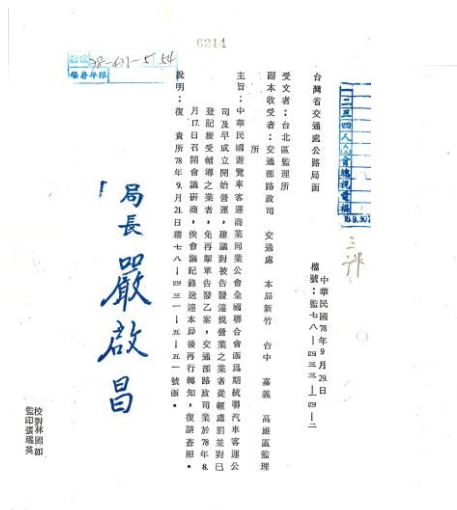 6214
78-431-5 54
台灣省交通處公路局函
中華民國78年9月29日
檔號：監七八—四三三—四—二
受文者：台北區監理所
副本收受者：交通部路政司 交通處 本局新竹 台中 嘉義 高雄區監理
所
主旨：中華民國遊覽車客運商業同業公會全國聯合會函爲期統聯汽車客運公
司及早成立開始營運，建議對被告發違規營業之業者從輕處罰並對已
登記接受輔導之業者，免再掣單告發乙案，交通部路政司業於78年8.
月17.日召開會議研商，俟會議記錄送達本局後再行轉知，復請查照。
說明：復 貴所78年9.月21.日稽七八—四三一—五—五一號函。
局長 嚴啟昌
校對林國卸
監印張瑞英